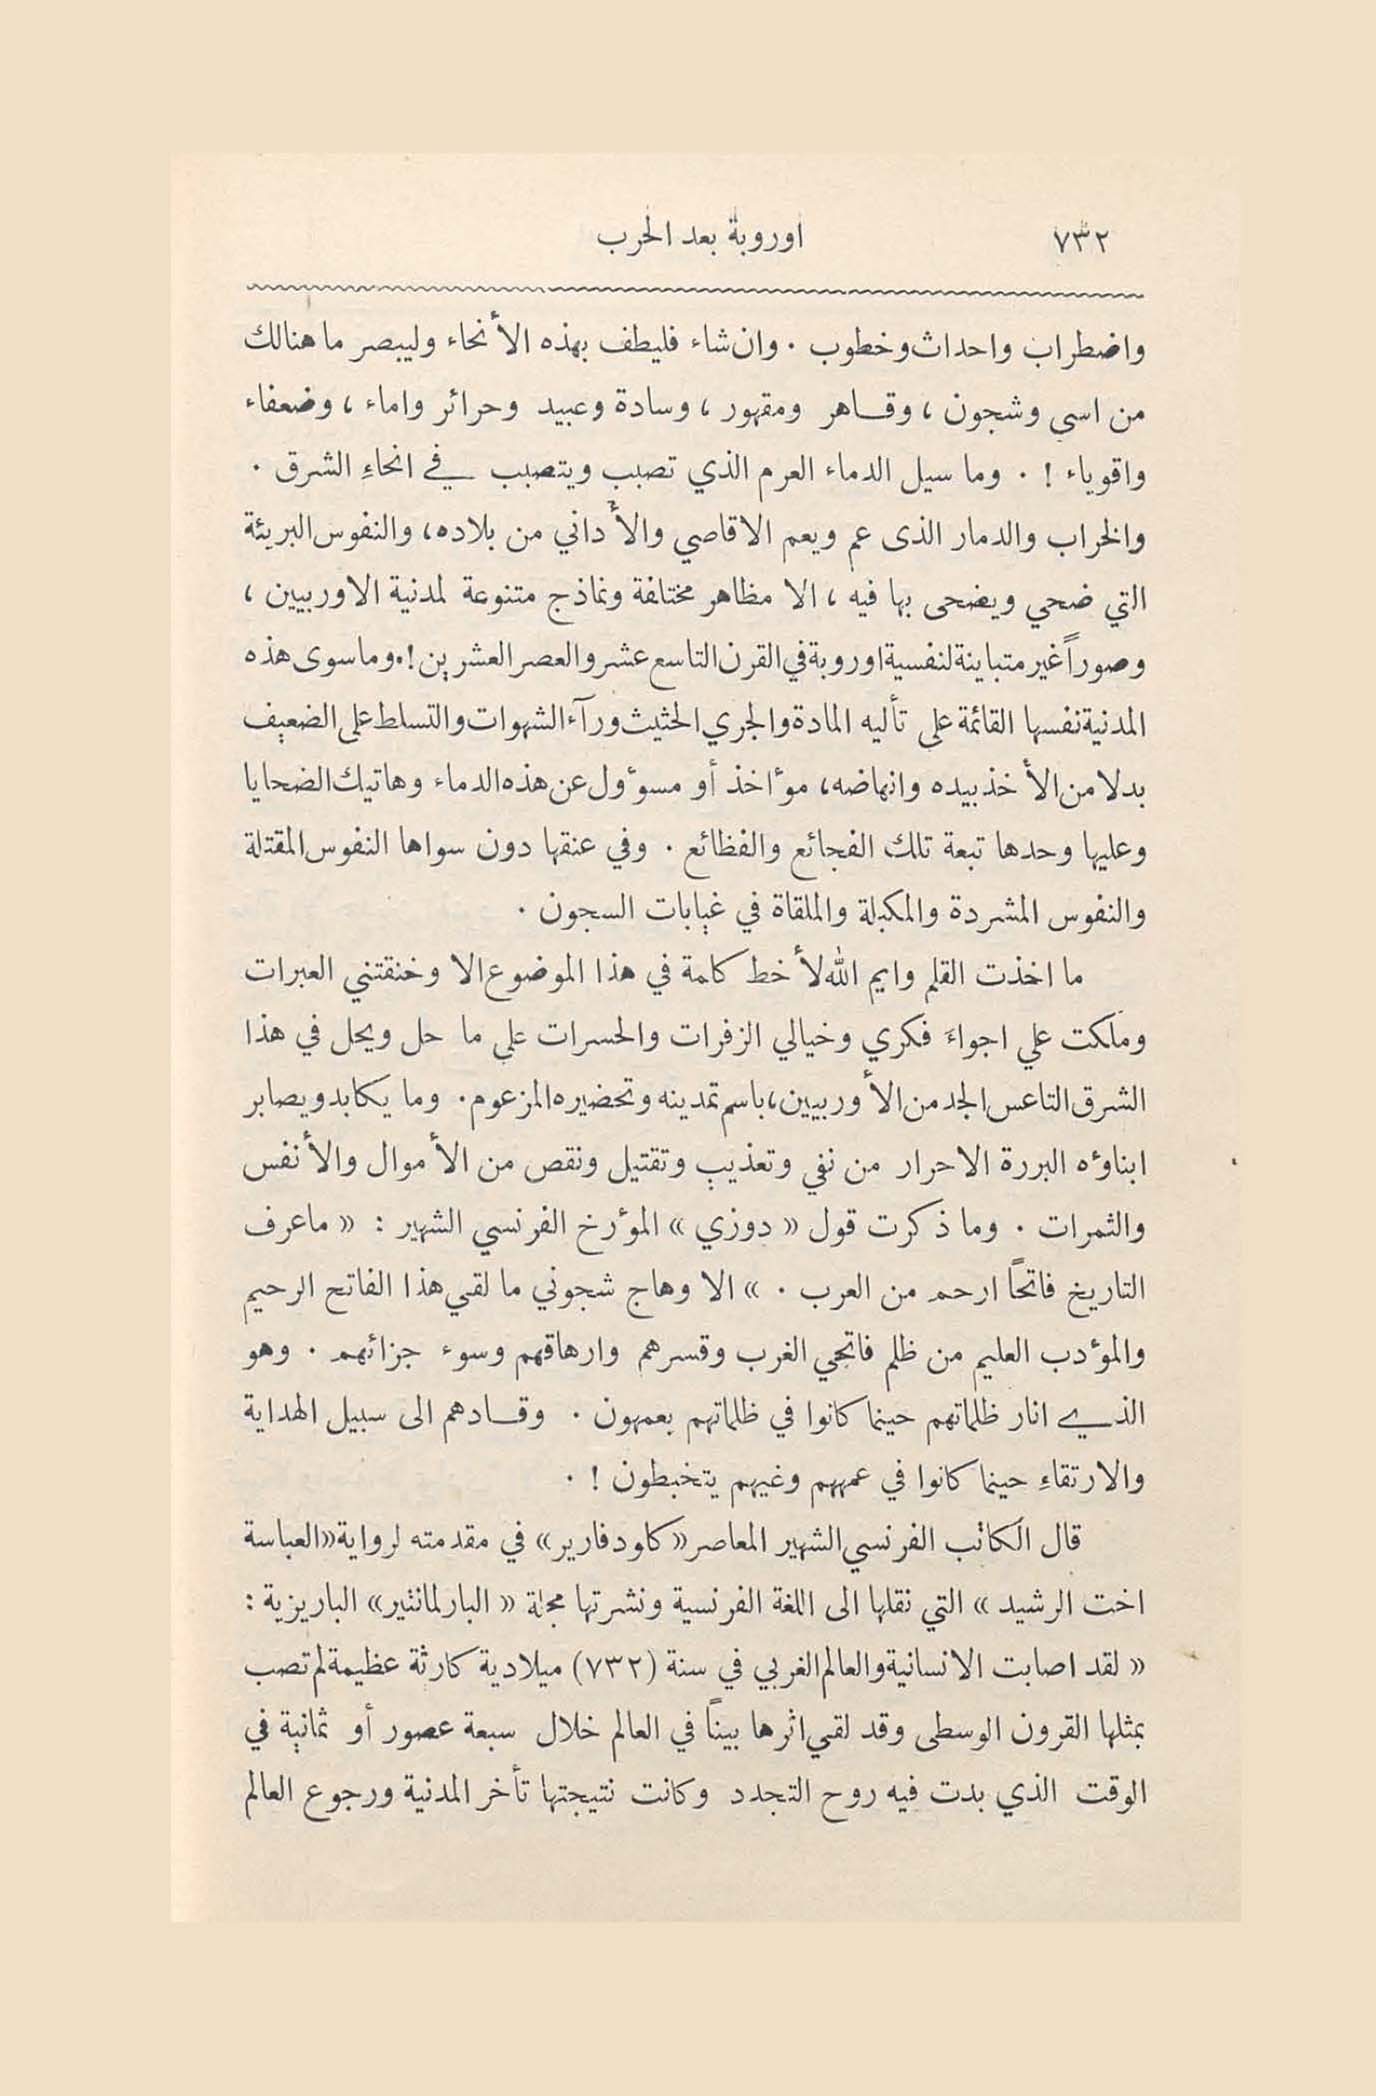 ٧٣٢ اوروبة بعد الحرب
واضطراب واحداث وخطوب . وان شاء فليطف بهذه الأنحاء وليبصر ما هنالك
من اسى وشجون ، وقاهر ومقهور ، وسادة وعبيد وحرائر واماء ، وضعفاء
واقوياء ! . وما سيل الدماء العرم الذي تصبب ويتصبب في انحاء الشرق .
والخراب والدمار الذى عم ويعم الاقاصي والأداني من بلاده ، والنفوس البريئة
التي ضحي ويضحى بها فيه ، الا مظاهر مختلفة ونماذج متنوعة لمدنية الاوربيين ،
وصوراً غير متباينة لنفسية اوروبة في القرن التاسع عشر والعصر العشرين ! . وما سوى هذه
المدنية نفسها القائمة على تأليه المادة والجري الحثيث ورآء الشهوات والتسلط على الضعيف
بدلا من الأخذ بيده وانهاضه ، مؤاخذ أو مسؤول عن هذه الدماء وهاتيك الضحايا
وعليها وحدها تبعة تلك الفجائع والفظائع . وفي عنقها دون سواها النفوس المقتلة
والنفوس المشردة والمكبلة والملقاة في غيابات السجون .
ما اخذت القلم وايم الله لأخط كلمة في هذا الموضوع الا وخنقتني العبرات
وملكت علي اجواء فكري وخيالي الزفرات والحسرات على ما حل ويحل في هذا
الشرق التاعس الجد من الأوربيين ، باسم تمدينه وتحضيره المزعوم . وما يكابد ويصابر
ابناؤه البررة الاحرار من نفي وتعذيب وتقتيل ونقص من الأموال والأنفس
والثمرات . وما ذكرت قول « دوزي » المؤرخ الفرنسي الشهير : « ماعرف
التاريخ فاتحاً ارحم من العرب . » الا وهاج شجوني ما لقي هذا الفاتح الرحيم
والمؤدب العليم من ظلم فاتحي الغرب وقسرهم وارهاقهم وسوء جزائهم . وهو
الذي انار ظلماتهم حينما كانوا في ظلماتهم يعمهون . وقادهم الى سبيل الهداية
والارتقاء حينما كانوا في عمههم وغيهم يتخبطون ! .
قال الكاتب الفرنسي الشهير المعاصر « كاود فارير » في مقدمته لرواية « العباسة
اخت الرشيد » التي نقلها الى اللغة الفرنسية ونشرتها مجلة « البارلمانتير » الباريزية :
« لقد اصابت الانسانية والعالم الغربي في سنة (٧٣٢) ميلادية كارثة عظيمة لم تصب
بمثلها القرون الوسطى وقد لقي اثرها بيناً في العالم خلال سبعة عصور أو ثمانية في
الوقت الذي بدت فيه روح التجدد وكانت نتيجتها تأخر المدنية ورجوع العالم